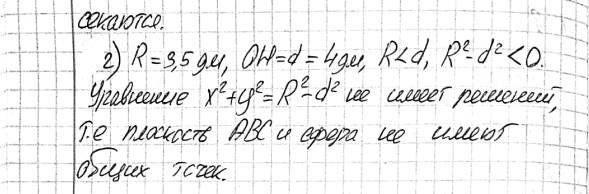 секаются.
2) R = 3,5 дм, OH = d = 4 дм, R < d, R² - d² < 0.
Уравнение x² + y² = R² - d² не имеет решений,
т.е плоскость ABC и сфера не имеют
общих точек.